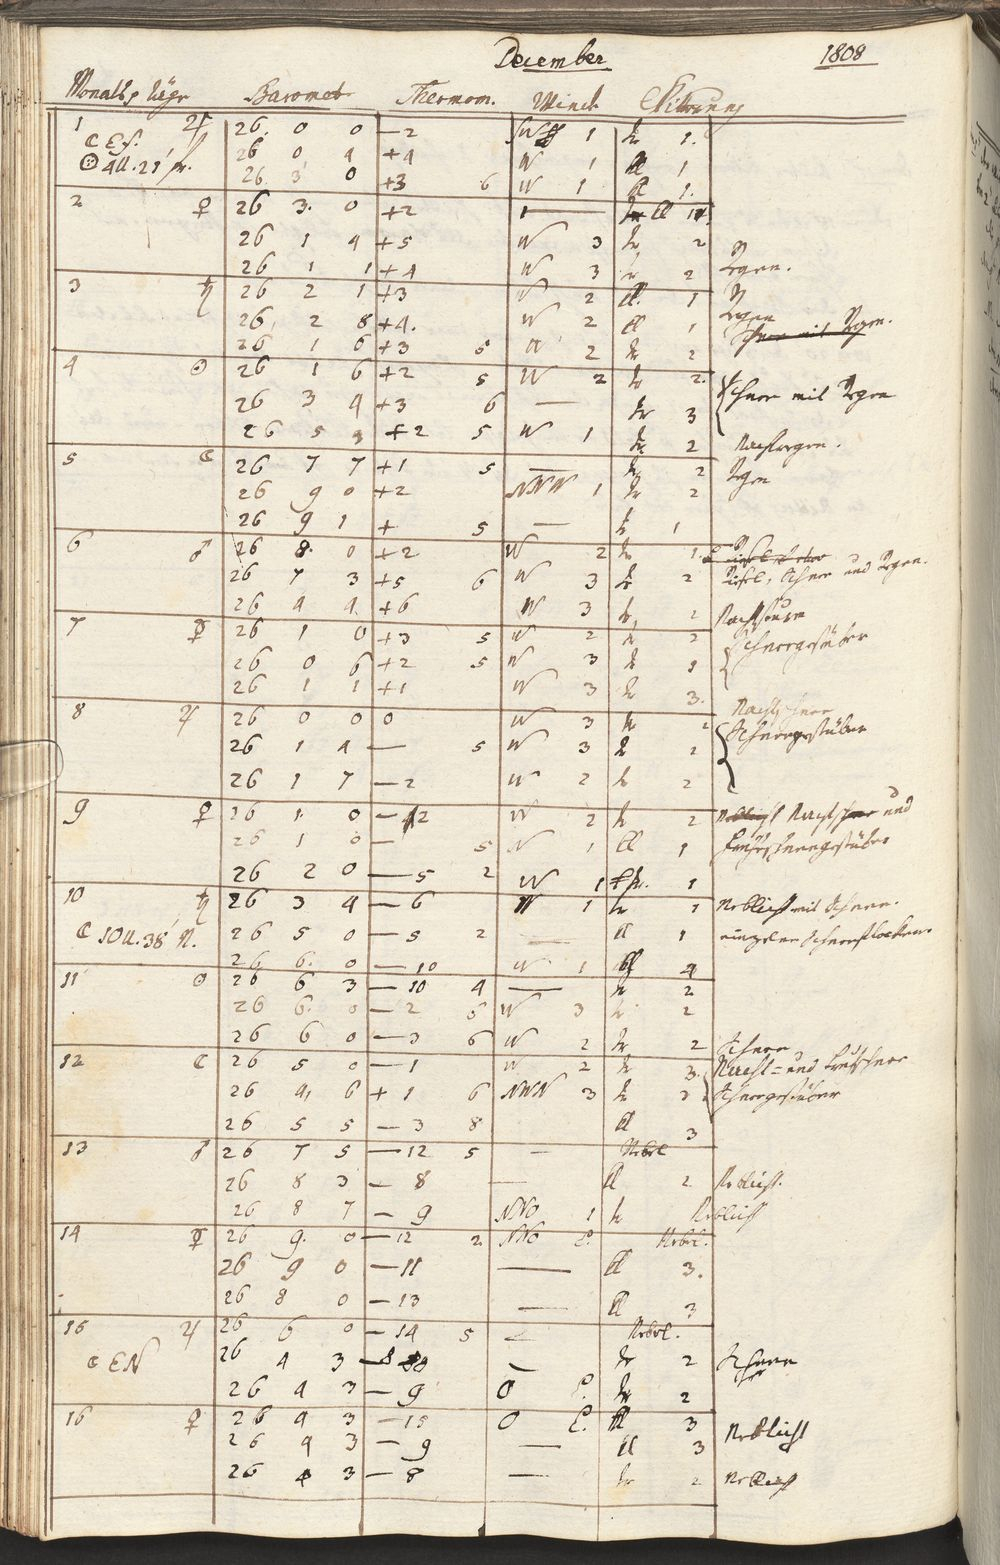 December 1808
Monats Täge Baromet. Thermom. Winde Witterung
1 ♃ 26. 0 0 —2 1 tr 1.
26 0 4 +4 W 1 kl 1
☉ 4 U. 21' fr. 26. 3 0 +3 6 W 1 kl 1.
2 ♀ 26 3. 0 +2 — kl 1
26 1 4 +5 W 3 tr 2
26 1 1 +4 W 3 tr 2 Regen.
3 ♄ 26 2 1 +3 W 2 kl. 1 Regen
26, 2 8 +4. W 2 kl 1 Schnee mit Regen.
26 1 6 +3 5 W 2 tr 2
4 ☉ 26 1 6 +2 5 W 2 tr 2. Schnee mit Regen
26 3 4 +3 6 — tr 3
26 5 +2 5 W 1 tr 2 Nachtregen.
5 ☾ 26 7 7 +1 5 — tr 2 Regen
26 9 0 +2 NNW 1 tr 2
26 9 1 + 5 — tr 1
6 ♂ 26 8. 0 +2 W 2 tr 1.
26 7 3 +5 6 W 3 tr 2 Schnee und Regen.
26 4 4 +6 W 3 tr 2 Nachtsturm
7 ☿ 26 1 0 +3 5 W 2 tr 2 Schneegestüber
26 0 6 +2 5 W 3 tr 1
26 1 1 +1 W 3 tr 3.
8 ♃ 26 0 0 0 W 3 tr 2 Nachtschnee
26 1 4 — 5 W 3 tr 2 Schneegestüber
26 1 7 —2 W 2 tr 2
9 ♀ 26 1. 0 —12 W 2 tr 2 Neblicht Nachtschnee und
26 1 0 — 5 N 1 kl 1 Frühschneegestüber
26 2 0 —5 2 W 1 1
10 ♄ 26 3 4 —6 W 1 tr 1 Neblicht mit Schnee.
☾ 10 U. 38' N. 26 5 0 —5 2 — kl 1 einzelne Schneeflocken.
26 6. 0 —10 W 1 kl 4
11 ☉ 26 6 3 —10 4 — tr 2
26 6. 0 —2 5 W 3 tr 2
26 6 0 —3 6 W 2 tr 2 Schnee
12 ☾ 26 5 0 —1 W 2 tr 3. Nacht= und Frühschnee
26 4, 6 +1 6 NWN 3 tr 2 Schneegestüber
26 5 5 —3 8 kl 3
13 ♂ 26 7 5 —12 5 — Nebel
26 8 3 —8 — kl 2 Neblicht.
26 8 7 —9 NNO 1 tr Neblicht
14 ☿ 26 9. 0 —12 2 NNO L. Nebel.
26 9 0 —11 — kl 3.
26 8 0 —13 — kl 3
15 ♃ 26 6 0 —14 5 — Nebel.
☾ EN 26 4 3 — — tr 2 Schnee
26 4 3 —9 O L. tr 2
16 ♀ 26 4 3 —15 O L. kl 3 Neblicht
26 4 3 —9 — kl 3
26 4 3 —8 — tr 2 Neblicht